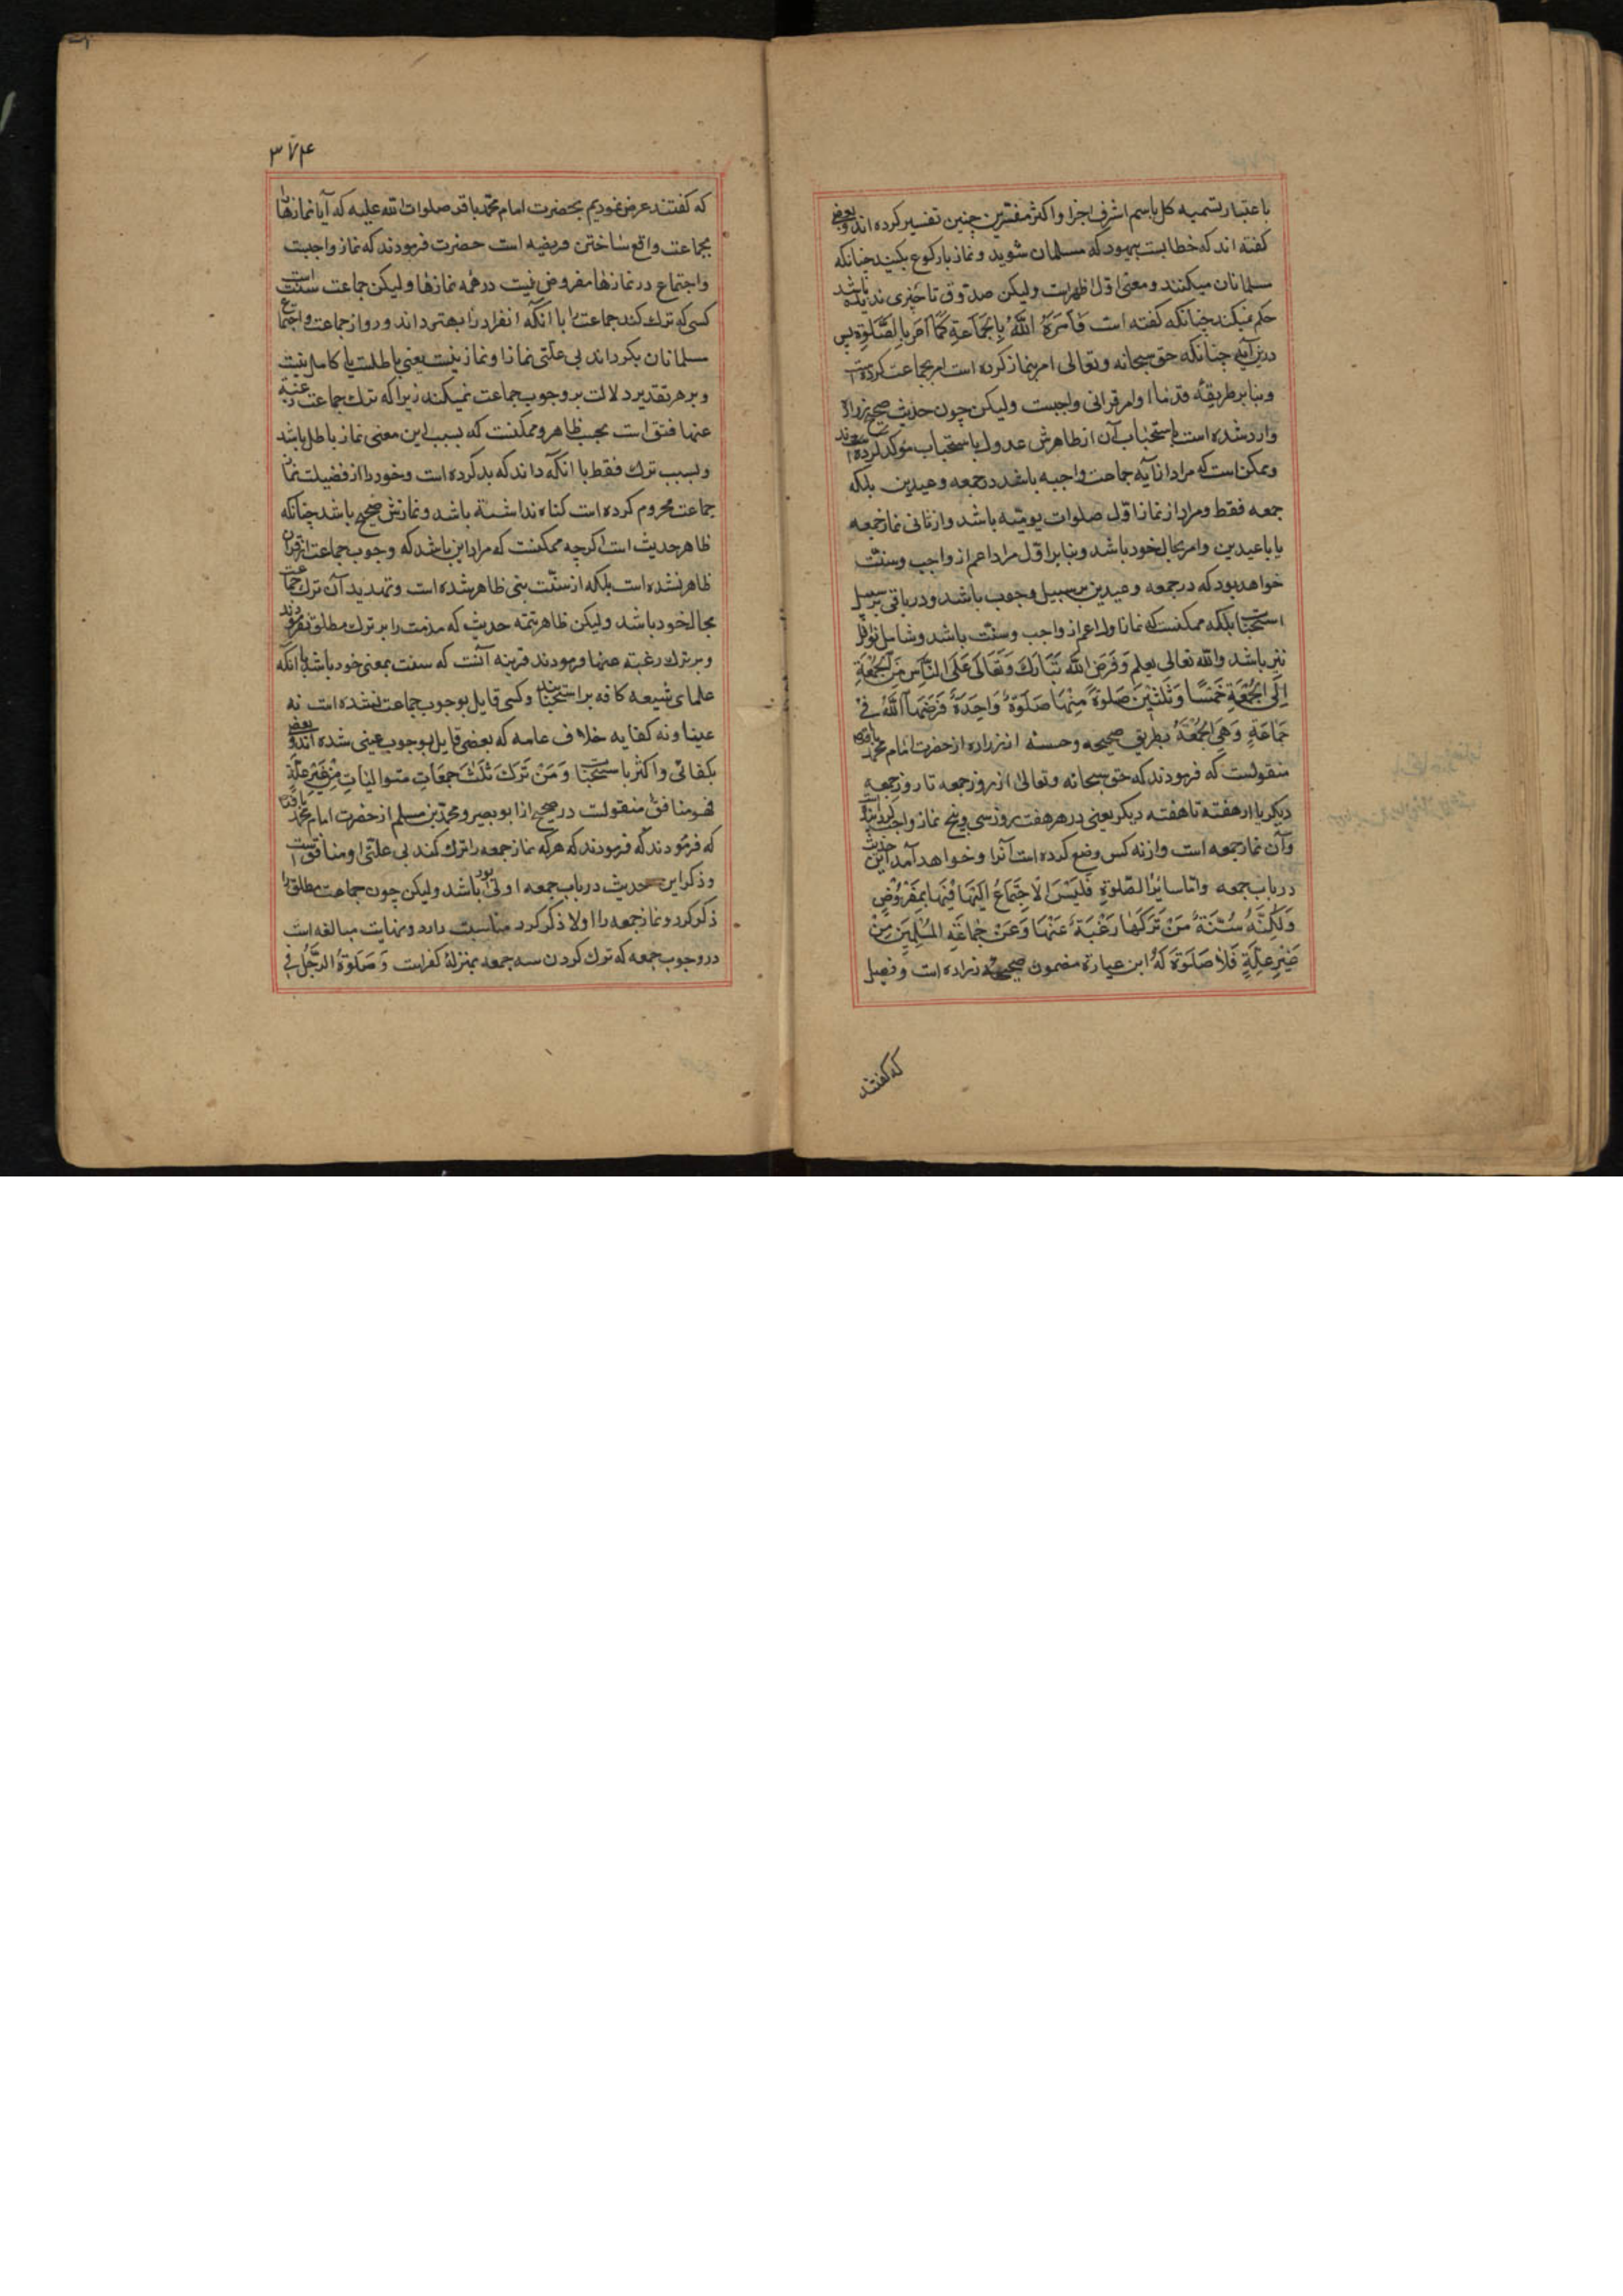 باعتبار تسمیه کل باسم اشرف اجزا و اکثر مفسّرین چنین تفسیر کرده‌اند و بعض
کفته اند که خطابست بیهود که مسلمان شوید و نماز بارکوع بکنید چنانکه
مسلمانان میکنند و معنی اوّل اظهرست ولیکن صدّوق تا خبری ندیده باشد
حکم نمیکند چنانکه کفته است فَاَمَرَهُ اللّٰهُ بِالْجَمَاعَةِ کَمَا اَمَرَ بِالصَّلٰوةِ پس
درین آیه چنانکه حق سبحانه وتعالی امر بنماز کرده است امر بجماعت کرده است
و بنابر طریقهٔ قدماء اوامر قرانی واجبست ولیکن چون حدیث صحیح زراره
وارد شده است باستحباب آن از ظاهرش عدول باستحباب مؤکد کرده‌اند
و ممکن است که مراد از آیه جماعت واجبه باشد در جمعه و عیدین بلکه
جمعه فقط و مراد از نماز اوّل صلوات یومیّه باشد و از ثانی نماز جمعه
یا باعیدین و امر بحال خود باشد و بنابر اوّل مراد اعم از واجب و سنّت
خواهد بود که در جمعه و عیدین بر سبیل وجوب باشد و در باقی بر سبیل
استحباب بلکه ممکنست که نماز اول اعم از واجب و سنّت باشد و شامل نوافل
نیز باشد والله تعالی یعلم وَفَرَضَ اللّٰهُ تَبَارَكَ وَتَعَالٰی عَلَی النَّاسِ مِنَ الْجُمْعَةِ
اِلَی الْجُمْعَةِ خَمْسًا وَثَلٰثِیْنَ صَلٰوةً مِنْهَا صَلٰوةٌ وَاحِدَةٌ فَرَضَهَا اللّٰهُ فِیْ
جَمَاعَةٍ وَهِیَ الْجُمْعَةُ بطریق صحیحه و حسنه از زراره از حضرت امام محمد باقر
منقولست که فرمودند که حق سبحانه وتعالی از روز جمعه تا روز جمعه
دیکر یا از هفته تا هفته دیکر یعنی در هر هفت روز سی و پنج نماز واجب کردانید
و آن نماز جمعه است و از نه کس وضع کرده است آنرا و خواهد آمد این حدیث
در باب جمعه وامّا سایرُ الصّلوةِ فَلَیْسَ الْاِجْتِمَاعُ اِلَیْهَا فِیْهَا بِمَفْرُوْضٍ
وَلٰکِنَّهُ سُنَّةٌ مَنْ تَرَکَهَا رَغْبَةً عَنْهَا وَعَنْ جَمَاعَةِ الْمُسْلِمِیْنَ مِنْ
غَیْرِ عِلَّةٍ فَلَا صَلٰوةَ لَهُ این عبارة مضمون صحیحهٔ زراره است و فضیل
که کفتند
۳۷۴
که کفتند عرض نمودیم بحضرت امام محمّد باقر صلوات الله علیه که آیا نمازها
بجماعت واقع ساختن فریضه است حضرت فرمودند که نماز واجبست
و اجتماع در نمازها مفروض نیست در همه نمازها ولیکن جماعت سنّت است
کسی که ترك کند جماعت را با آنکه انفراد را بهتر داند و رو از جماعت و اجتماع
مسلمانان بکرداند بی علّتی نماز او نماز نیست یعنی باطلست یا کامل نیست
و بر هر تقدیر دلالت بر وجوب جماعت نمیکند زیرا که ترك جماعت رغبة
عنها فسق است بحسب ظاهر و ممکنست که بسبب این معنی نماز باطل باشد
و بسبب ترك فقط با آنکه داند که بد کرده است و خود را از فضیلت نماز
جماعت محروم کرده است کناه نداشته باشد و نمازش صحیح باشد چنانکه
ظاهر حدیث است اکرچه ممکنست که مراد این باشد که وجوب جماعت از قران
ظاهر نشده است بلکه از سنّت نبی ظاهر شده است و تهدید آن ترك جماعت
بحال خود باشد ولیکن ظاهر تتمّه حدیث که مذمت را بر ترك مطلق نفرمودند
و بر ترك رغبة عنها فرمودند قرینه آنست که سنت بمعنی خود باشد با آنکه
علمای شیعه کافه بر استحبابند و کسی قایل بوجوب جماعت نشده است نه
عینا و نه کفایه خلاف عامه که بعضی قایل بوجوب عینی شده اند و بعض
بکفائی و اکثر باستحباب وَمَنْ تَرَكَ ثَلٰثَ جُمَعَاتٍ متوالیاتٍ مِنْ غَیْرِ عِلَّةٍ
فهو منافق منقولست در صحیح از ابو بصیر و محمّد بن مسلم از حضرت امام محمد باقر
که فرمودند که فرمودند که هرکه نماز جمعه را ترك کند بی علّتی او منافق است
و ذکر این حدیث در باب جمعه اولی بود باشد ولیکن چون جماعت مطلق را
ذکر کرد و نماز جمعه را اولا ذکر کرد مناسبت دارد و نهایت مبالغه است
در وجوب جمعه که ترك کردن سه جمعه بمنزلهٔ کفرست وَصَلٰوةُ الرَّجُلِ فی